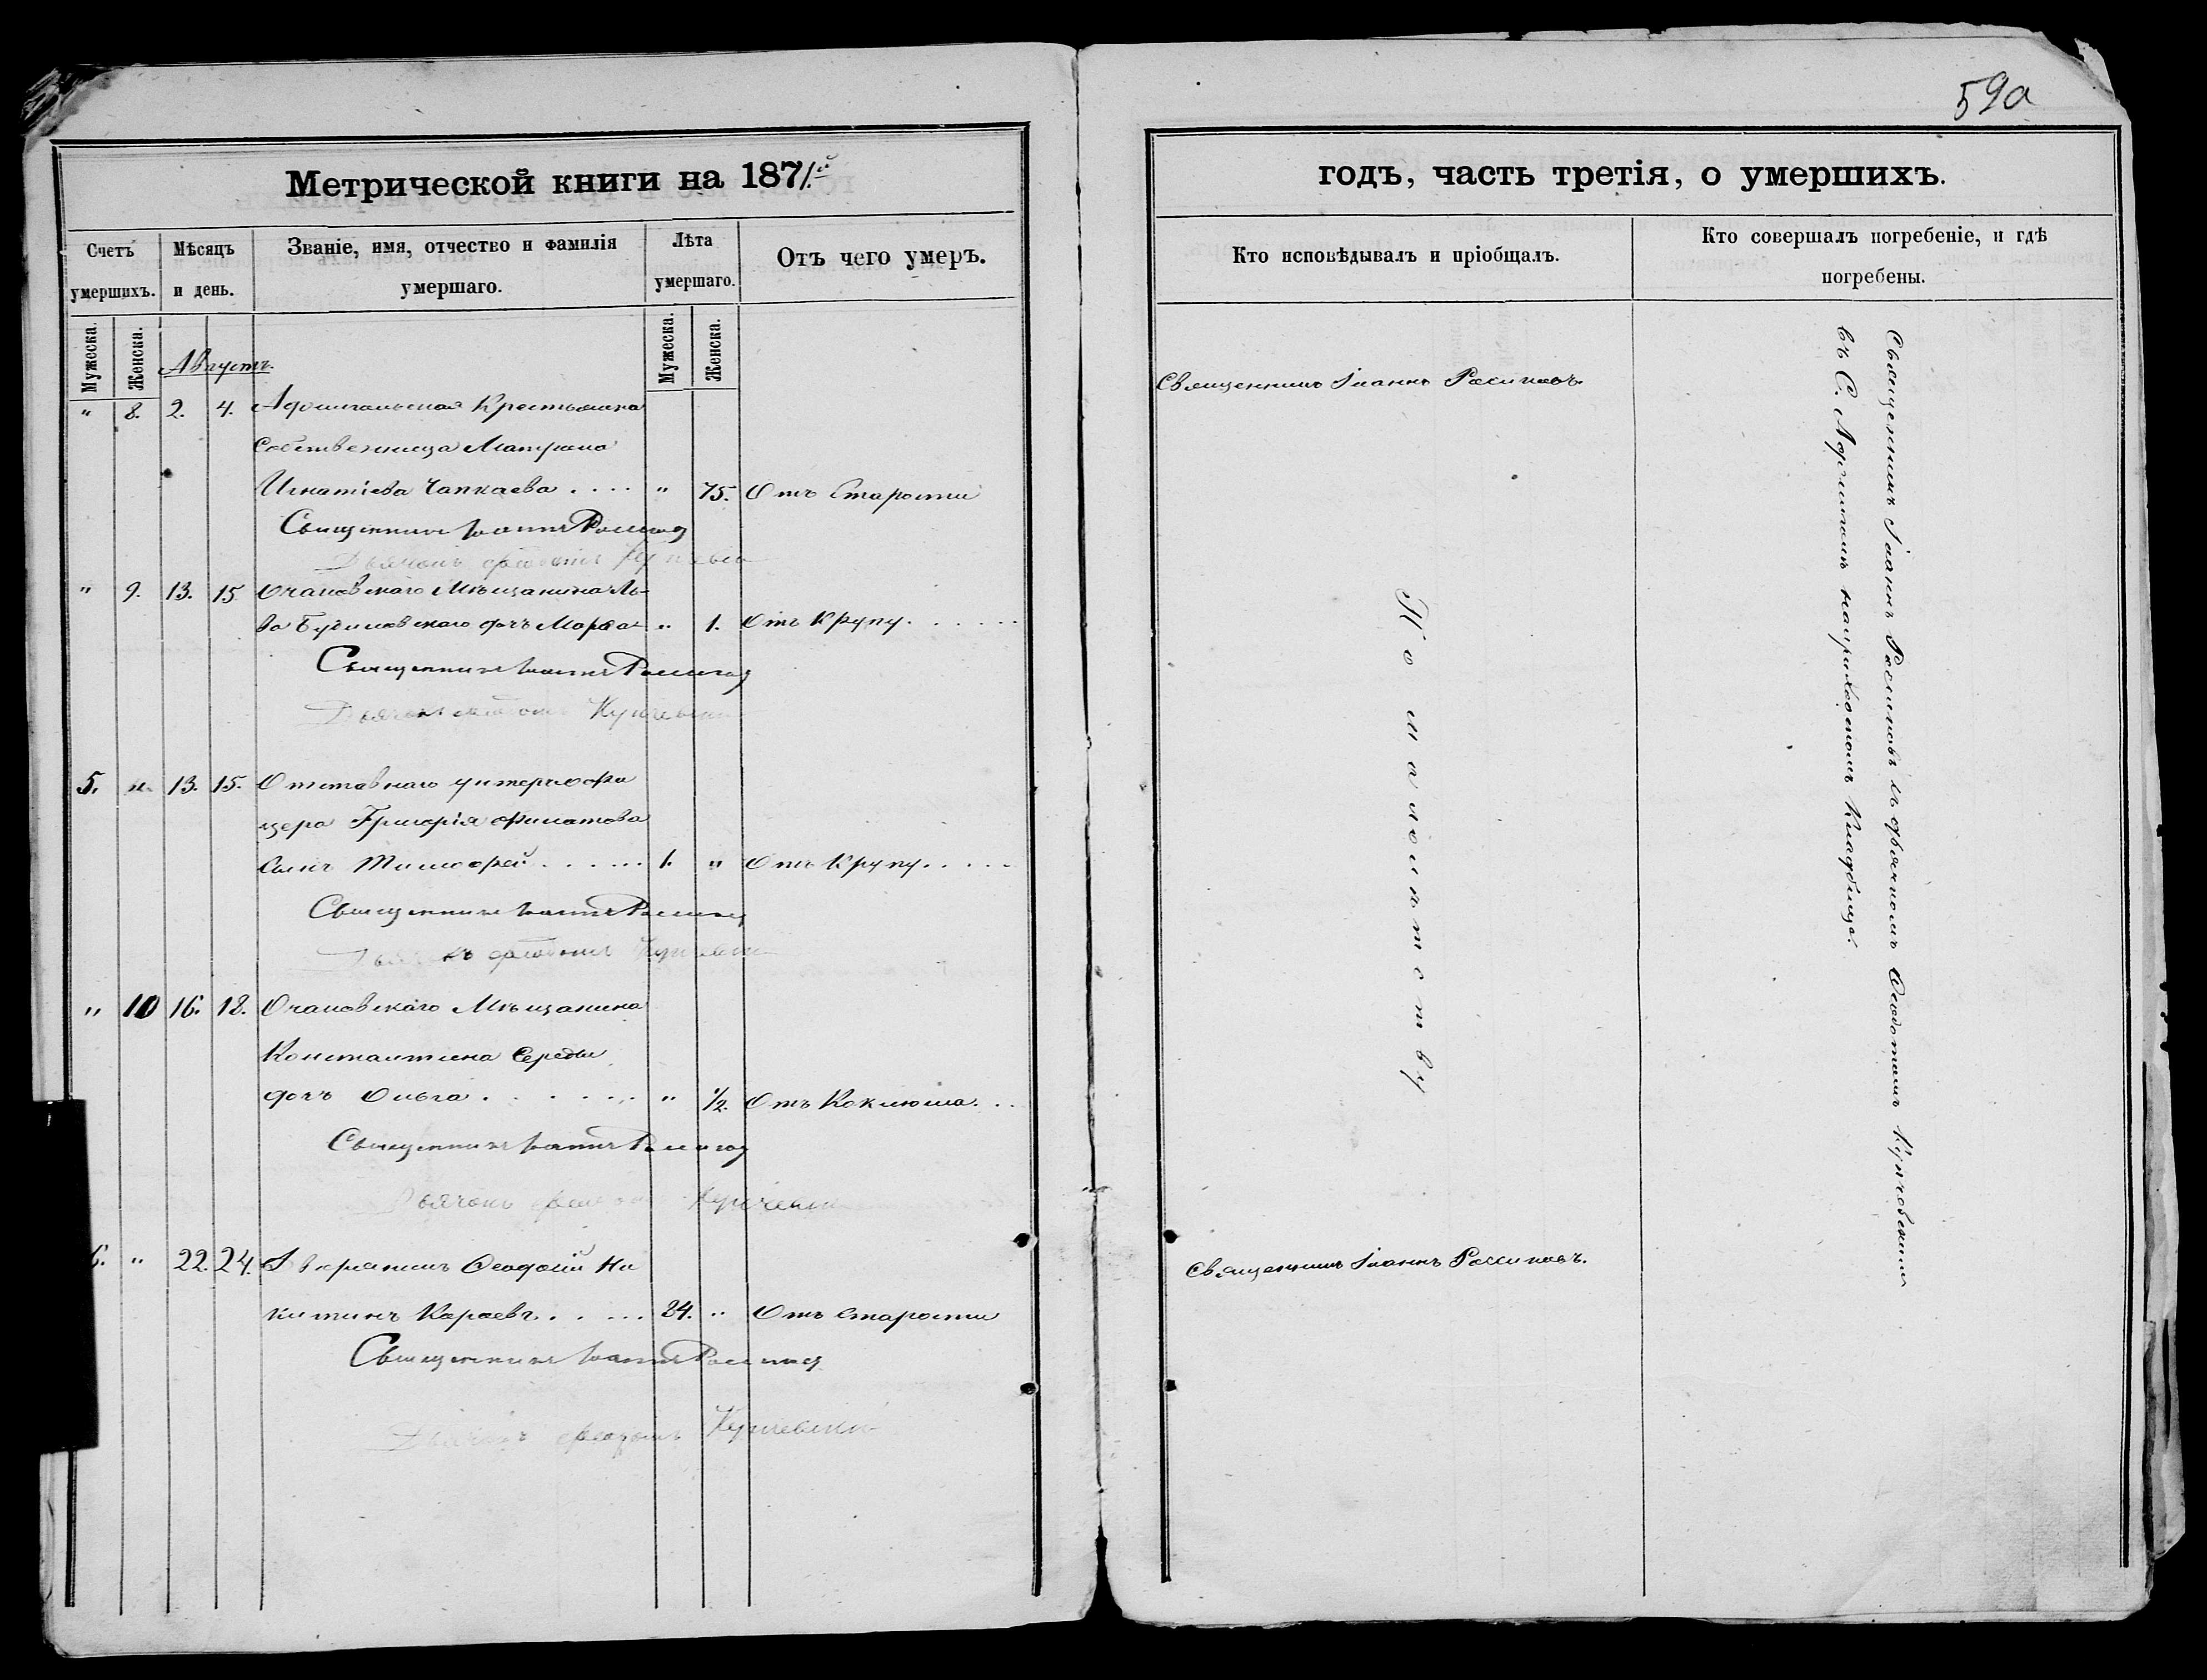 59а
Метрической книги на 1871.й
годъ, часть третія, о умершихъ.
Счетъ умершихъ.
Мѣсяцъ и день.
Званіе, имя, отчество и фамилія умершаго.
Лѣта умершаго.
Отъ чего умеръ.
Кто исповѣдывалъ и пріобщалъ.
Кто совершалъ погребеніе, и гдѣ погребены.
Мужеска.
Женска.
Мужеска.
Женска.
Августъ.
" 8. 2. 4. Крестьянка
Собственница Матрона
Игнатіева Чапкаева . . . . " 75. Отъ Старости
Священникъ Іоаннъ Россиновъ
Дьячокъ
" 9. 13. 15. Очаковскаго Мѣщанина Ль-
ва дочь Марѳа " 1. Отъ Крупу. . . . . .
Священникъ Іоаннъ Россиновъ
Дьячокъ Купчевскій
5. " 13. 15. Отставнаго унтерофи
цера Григорія Филатова
Сынъ Тимофей . . . . . . 1. " Отъ Крупу. . . . .
Священникъ Іоаннъ Россиновъ
Дьячокъ Купчевскій
" 10 16. 18. Очаковскаго Мѣщанина
Константина Середы
дочь Ольга . . . . . . . " 1/2. Отъ Коклюша. . .
Священникъ Іоаннъ Россиновъ
Дьячокъ Купчевскій
6. " 22. 24. Дворянинъ Ѳеодосій Ни
китинъ Караевъ. . . . . 84. " Отъ старости
Священникъ Іоаннъ Россиновъ
Дьячокъ Купчевскій
Священникъ Іоаннъ Россиновъ.
По малолѣтству
Священникъ Іоаннъ Россиновъ.
Священникъ Іоаннъ Россиновъ съ дьячкомъ Ѳеодотомъ Купчевскимъ
въ С. на приходскомъ Кладбищѣ.